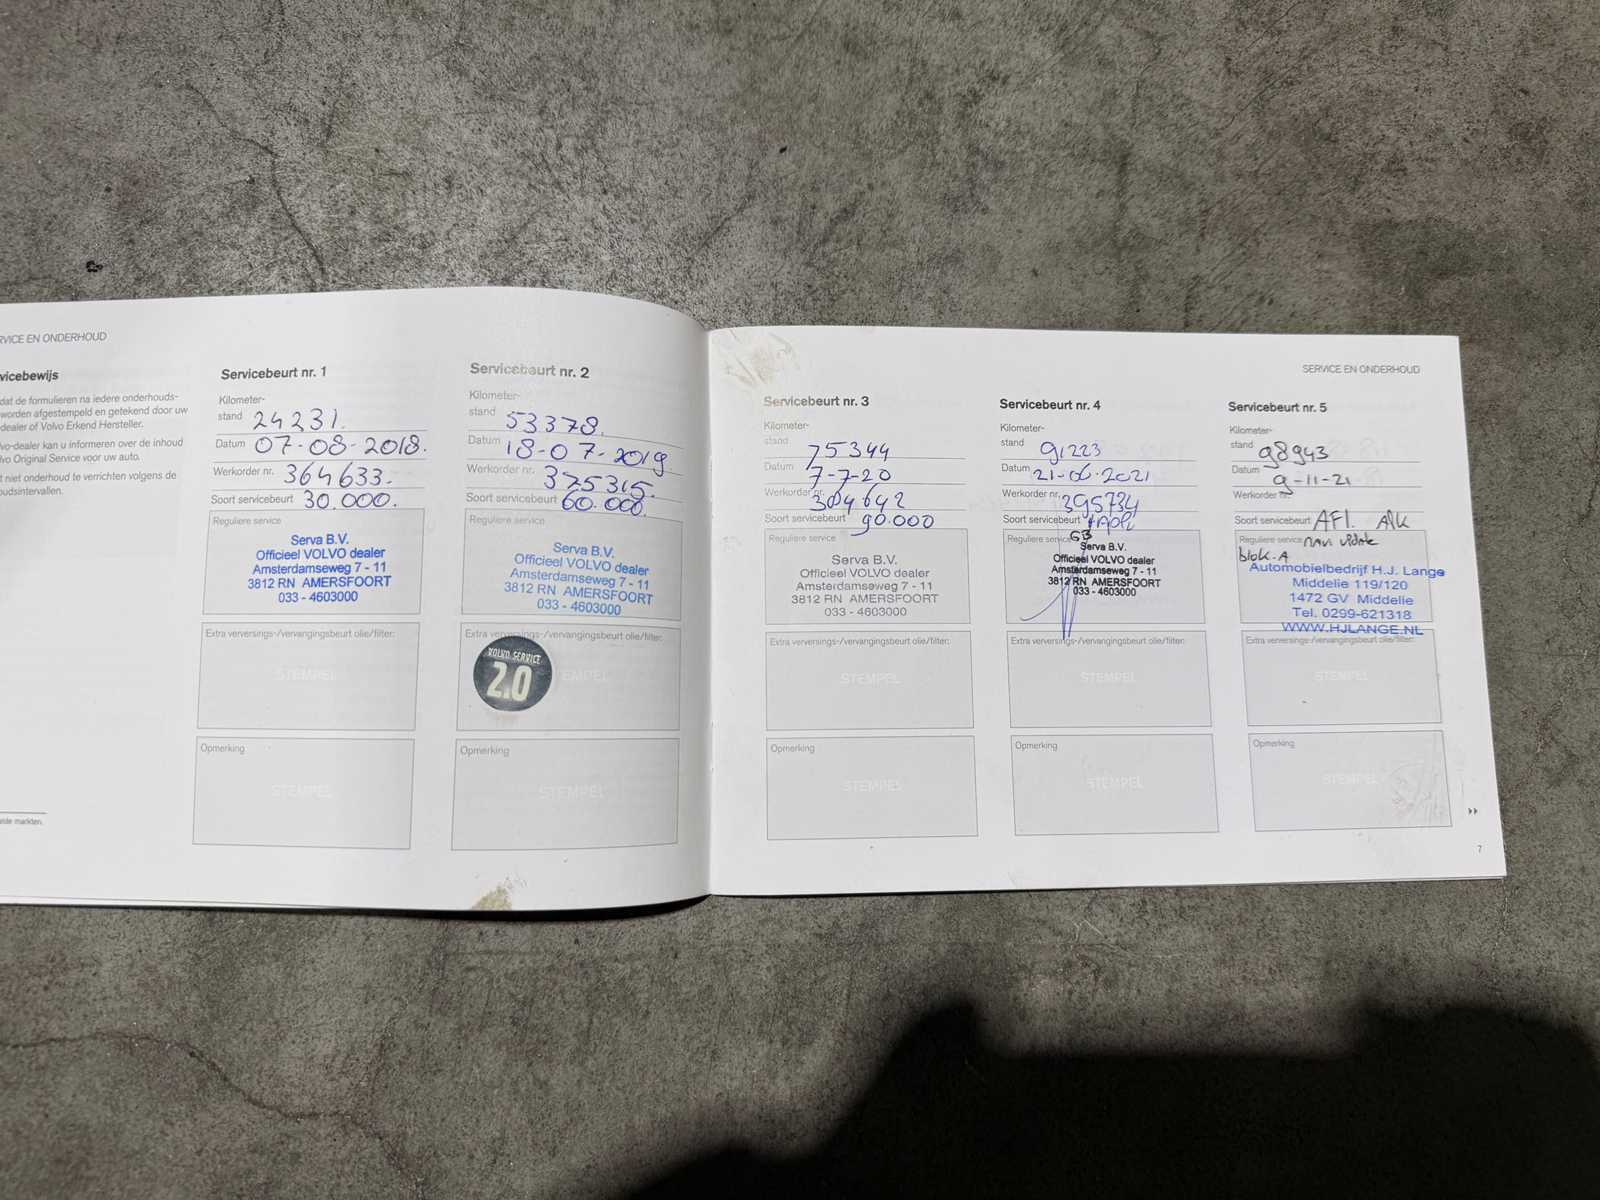 RVICE EN ONDERHOUD
vicebewijs
dat de formulieren na iedere onderhouds-
worden afgestempeld en getekend door uw
dealer of Volvo Erkend Hersteller.
lvo-dealer kan u informeren over de inhoud
lvo Original Service voor uw auto.
t niet onderhoud te verrichten volgens de
oudsintervallen.
Servicebeurt nr. 1
Kilometer-
stand 24231.
Datum 07-08-2018.
Werkorder nr. 364633.
Soort servicebeurt 30.000.
Reguliere service
Serva B.V.
Officieel VOLVO dealer
Amsterdamseweg 7 - 11
3812 RN AMERSFOORT
033 - 4603000
Extra verversings-/vervangingsbeurt olie/filter:
STEMPEL
Opmerking
STEMPEL
Servicebeurt nr. 2
Kilometer-
stand 53378.
Datum 18-07-2019
Werkorder nr. 375315.
Soort servicebeurt 60.000.
Reguliere service
Serva B.V.
Officieel VOLVO dealer
Amsterdamseweg 7 - 11
3812 RN AMERSFOORT
033 - 4603000
Extra verversings-/vervangingsbeurt olie/filter:
VOLVO SERVICE
2.0
EMPEL
Opmerking
STEMPEL
elde markten.
SERVICE EN ONDERHOUD
Servicebeurt nr. 3
Kilometer-
stand 75344
Datum 7-7-20
Werkorder nr. 384642
Soort servicebeurt 90.000
Reguliere service
Serva B.V.
Officieel VOLVO dealer
Amsterdamseweg 7 - 11
3812 RN AMERSFOORT
033 - 4603000
Extra verversings-/vervangingsbeurt olie/filter:
STEMPEL
Opmerking
STEMPEL
Servicebeurt nr. 4
Kilometer-
stand 91223
Datum 21-06-2021
Werkorder nr. 395734
Soort servicebeurt
Reguliere service GB
Serva B.V.
Officieel VOLVO dealer
Amsterdamseweg 7 - 11
3812 RN AMERSFOORT
033 - 4603000
Extra verversings-/vervangingsbeurt olie/filter:
STEMPEL
Opmerking
STEMPEL
Servicebeurt nr. 5
Kilometer-
stand 98943
Datum 9-11-21
Werkorder nr.
Soort servicebeurt AFl.
Reguliere service
blok. A
Automobielbedrijf H.J. Lange
Middelie 119/120
1472 GV Middelie
Tel. 0299-621318
WWW.HJLANGE.NL
Extra verversings-/vervangingsbeurt olie/filter:
STEMPEL
Opmerking
STEMPEL
7